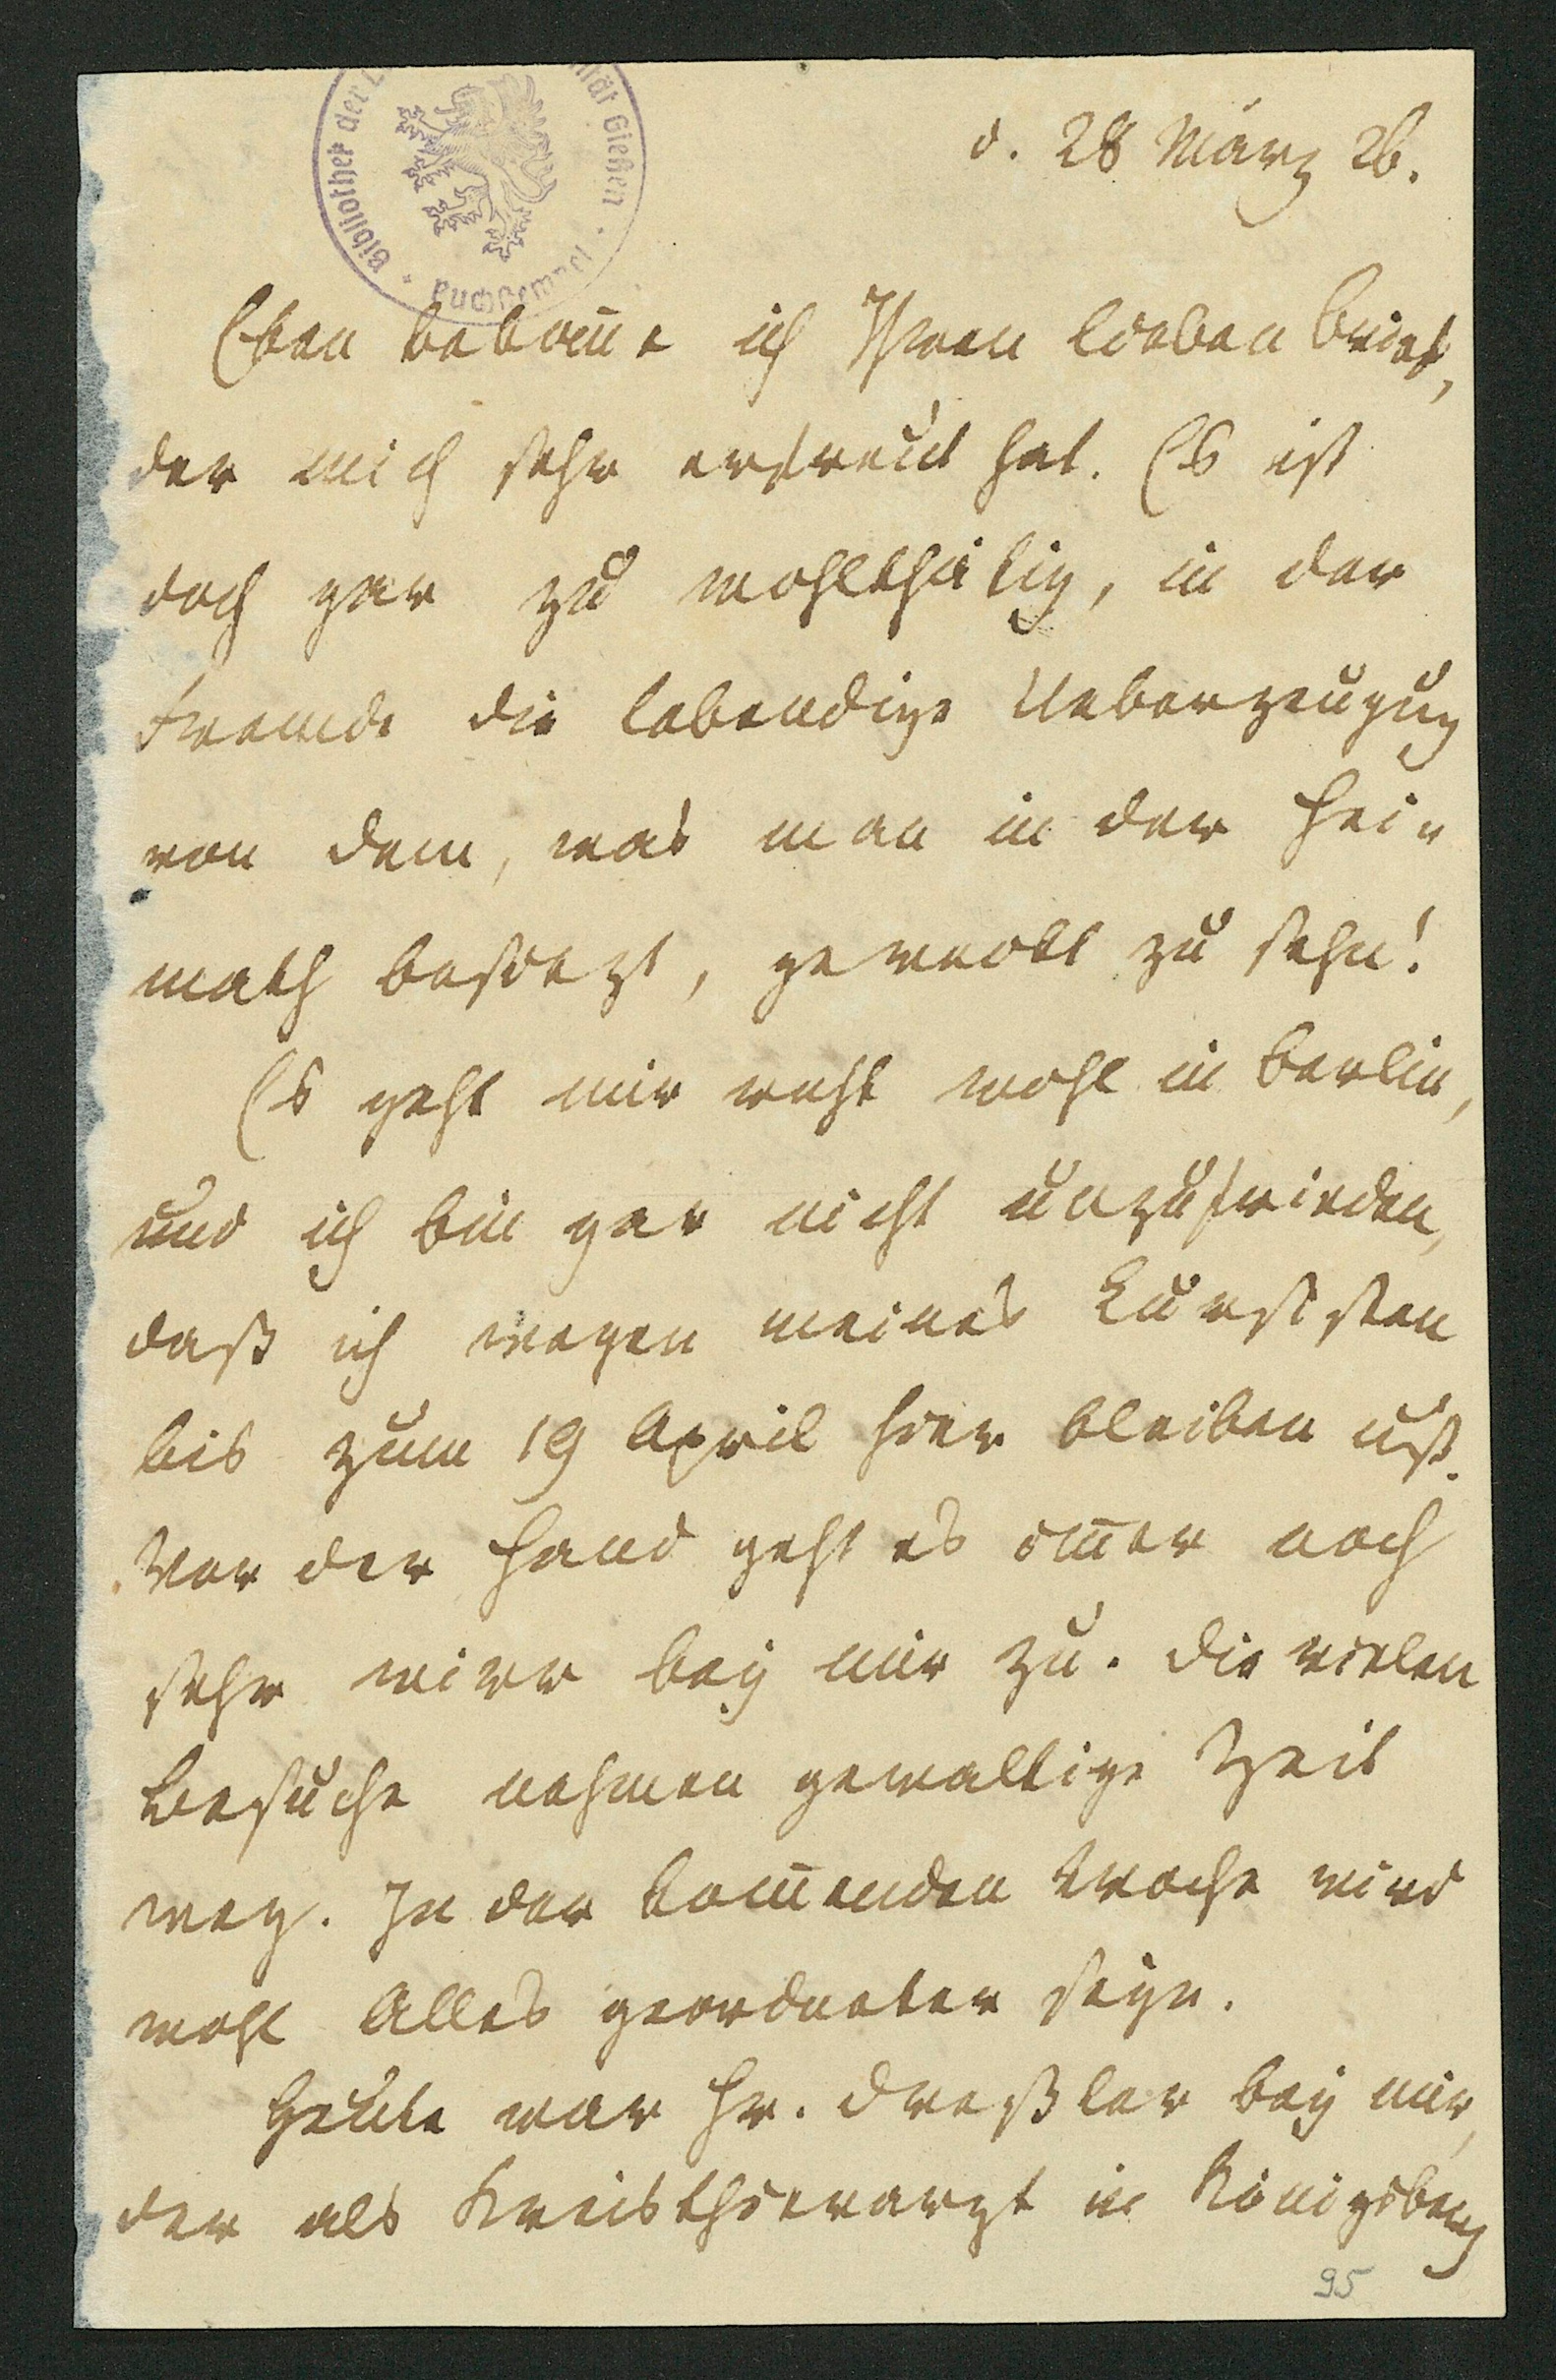 Bibliothek der L
ität Gießen
d. 28 März 26.
Eben bekom̅e ich Ihren lieben Brief,
der mich sehr erfreut hat. Es ist
doch gar zu wohlthätig, in der
Fremde die lebendige Ueberzeugug
von dem, was man in der Hei-
math besitzt, geweckt zu sehn!
Es geht mir recht wohl in Berlin,
und ich bin gar nicht unzufrieden,
daß ich wegen meines
bis zum 19 April hier bleiben uß.
Vor der Hand geht es im̅er noch
sehr wirr bey mir zu. Die vielen
Besuche nehmen gewaltige Zeit
weg. In der kom̅enden Woche wird
wohl Alles geordneter seyn.
Heute war Hr. Dreßler bey mir,
der als Kreisthierarzt in Königsberg
95